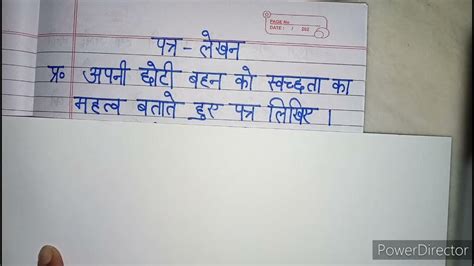 PAGE No.
DATE : / /202
पत्र - लेखन
प्र० अपनी छोटी बहन को स्वच्छता का
महत्व बताते हुए पत्र लिखिए ।
PowerDirector